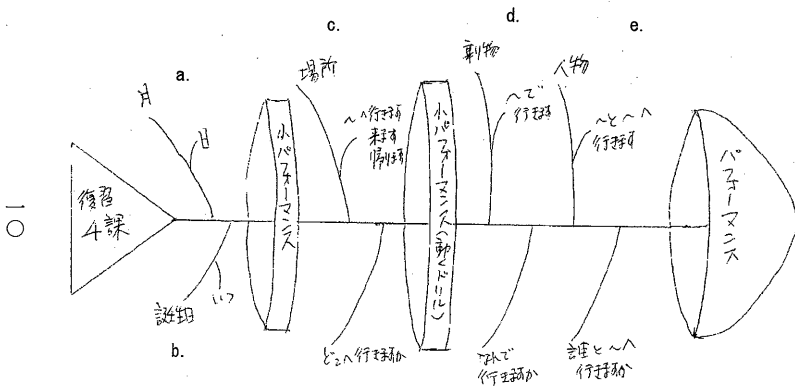 一〇
復習
4課
a.
月
日
誕生日
いつ
b.
小パフォーマンス
c.
場所
〜へ行きます
来ます
帰ります
どこへ行きますか
小パフォーマンス(動くドリル)
d.
乗物
〜で
行きます
なんで
行きますか
e.
人物
〜と〜へ
行きます
誰と〜へ
行きますか
パフォーマンス